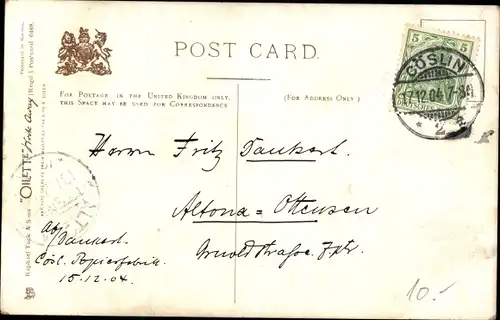 POST CARD.
FOR POSTAGE IN THE UNITED KINGDOM ONLY,
THIS SPACE MAY BE USED FOR CORRESPONDENCE
(FOR ADDRESS ONLY.)
5 5
CÖSLIN
17.12.04.7-8
* 2
ALT
Herrn Fritz Dankert.
Altona = Ottensen
Arnoldstraße
Abs/
Dankert.
Cösl. Papierfabrik
15.12.04.
10.-
Raphael Tuck & Sons' "OILETTE" [Regd.] Postcard 6468.